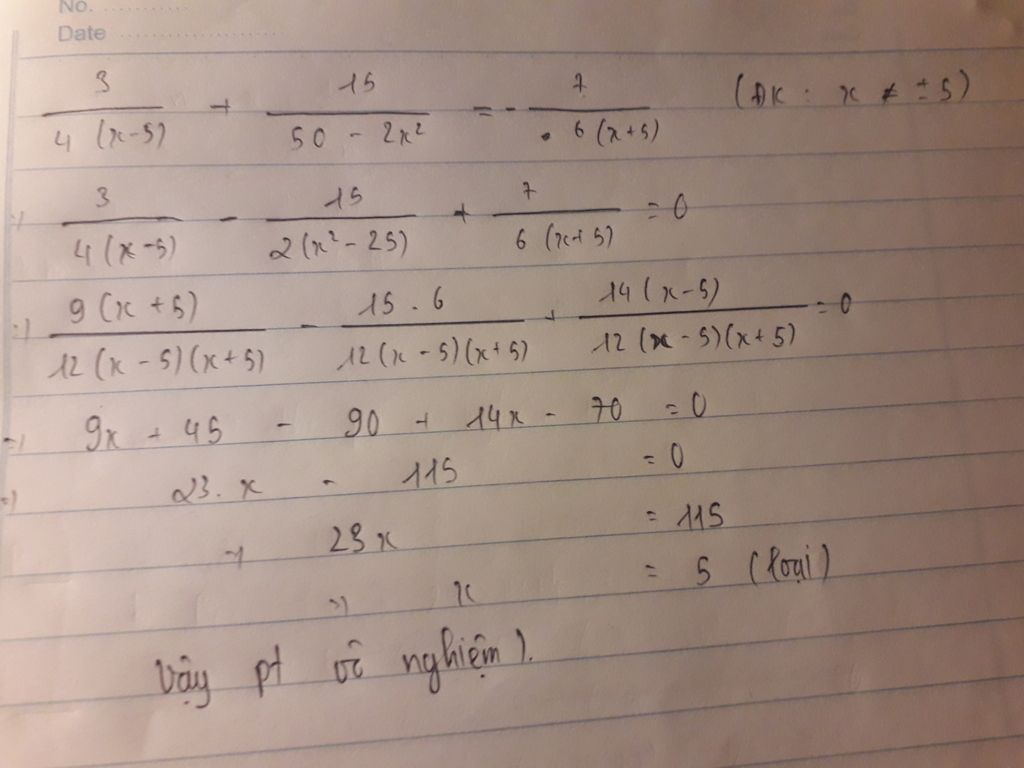 No. ..................
Date ..........................
3/(4 (x-5)) + 15/(50 - 2x²) = - 7/(6 (x+5)) (ĐK : x ≠ ± 5)
=) 3/(4 (x-5)) - 15/(2(x² - 25)) + 7/(6 (x+5)) = 0
=) 9 (x + 5)/(12 (x - 5)(x+5)) - 15 . 6/(12 (x - 5)(x+5)) + 14 (x-5)/(12 (x - 5)(x+5)) = 0
=) 9x + 45 - 90 + 14x - 70 = 0
=) 23. x - 115 = 0
=) 23x = 115
=) x = 5 (loại)
Vậy pt vô nghiệm ).